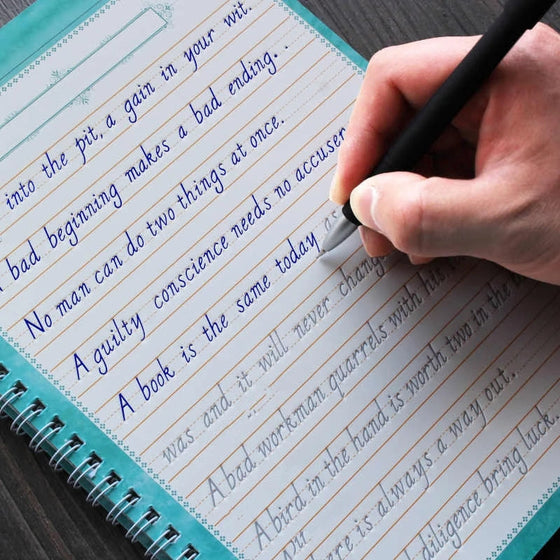 into the pit, a gain in your wit.
bad beginning makes a bad ending..
No man can do two things at once.
A guilty conscience needs no accuser
A book is the same today as
was and it will never chang
A bad workman quarrels with his
A bird in the hand is worth two in the
is always a way out.
diligence bring luck.